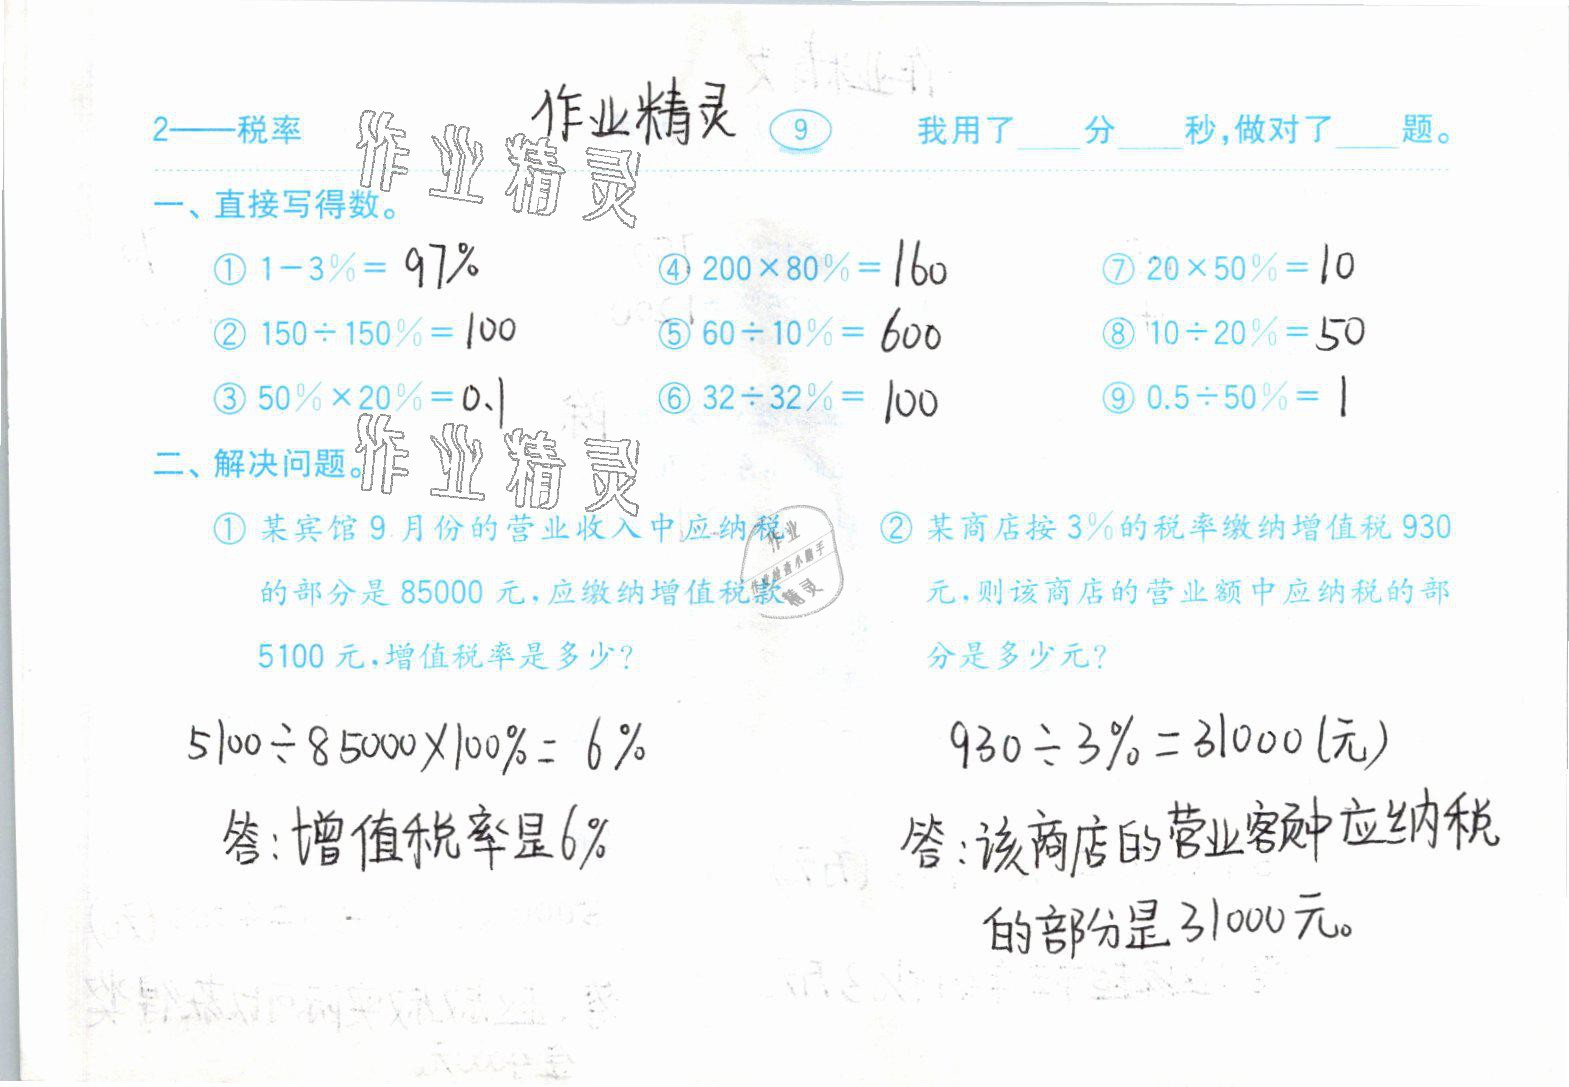 作业精灵
2——税率 9 我用了____分____秒,做对了____题。
作业精灵
一、直接写得数。
① 1-3%= 97% ④ 200×80%= 160 ⑦ 20×50%= 10
② 150÷150%= 100 ⑤ 60÷10%= 600 ⑧ 10÷20%= 50
③ 50%×20%= 0.1 ⑥ 32÷32%= 100 ⑨ 0.5÷50%= 1
二、解决问题。
作业精灵
① 某宾馆9月份的营业收入中应纳税
的部分是85000元,应缴纳增值税款
5100元,增值税率是多少?
5100÷85000×100%= 6%
答:增值税率是6%
作业
精灵
② 某商店按3%的税率缴纳增值税930
元,则该商店的营业额中应纳税的部
分是多少元?
930÷3%=31000(元)
答:该商店的营业额中应纳税
的部分是31000元。